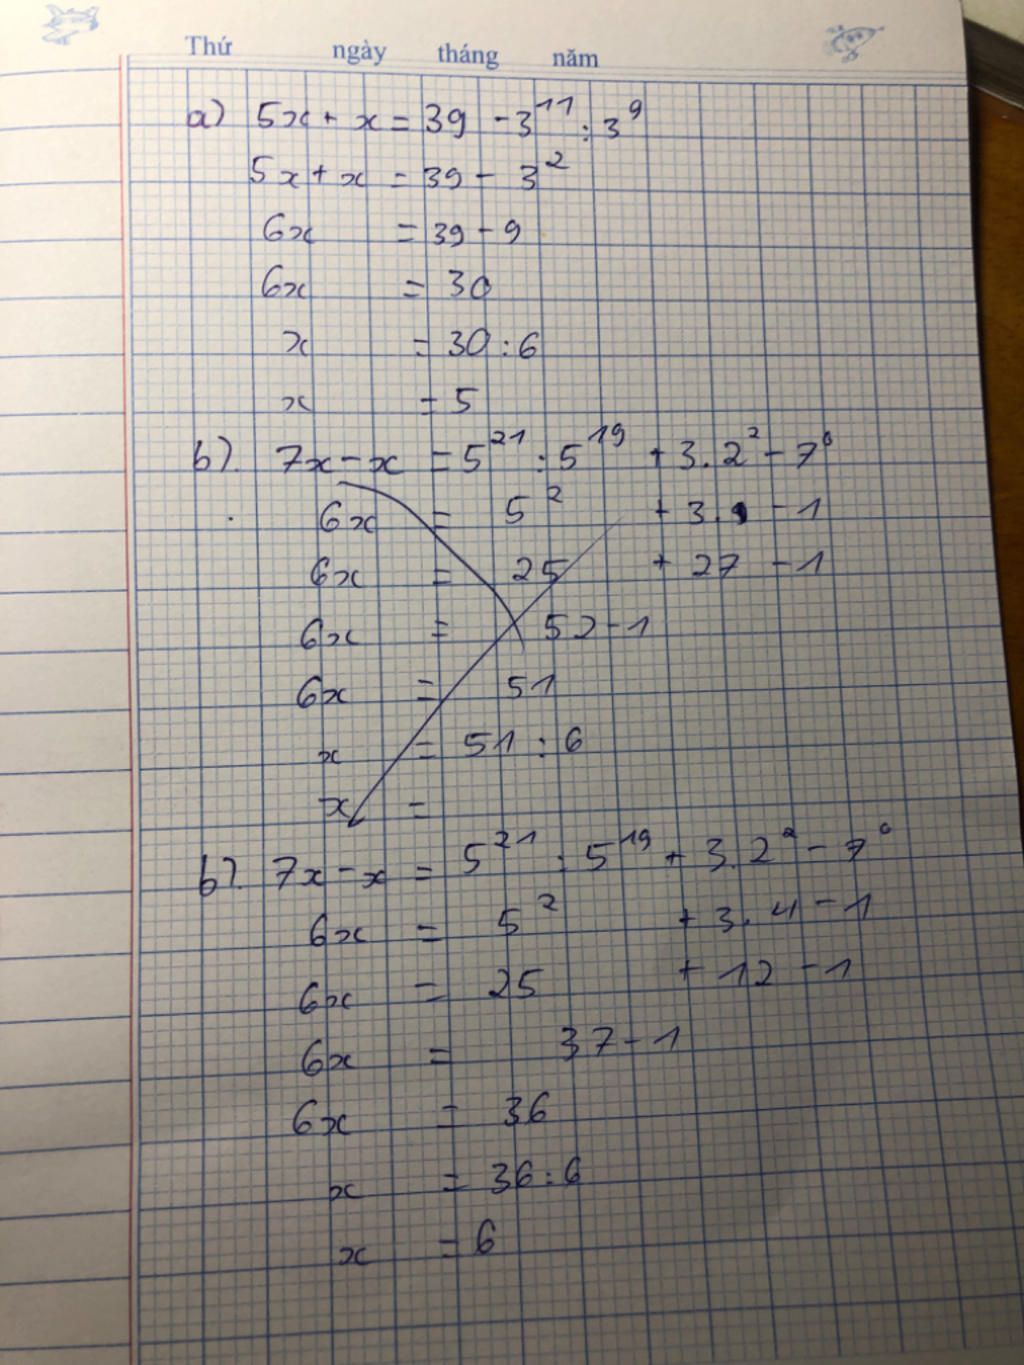 Thứ ngày tháng năm
a) 5x + x = 39 - 3¹¹ : 3⁹
5x + x = 39 - 3²
6x = 39 - 9
6x = 30
x = 30 : 6
x = 5
b). 7x - x = 5²¹ : 5¹⁹ + 3.2² - 7⁰
6x = 5² + 3.9 - 1
6x = 25 + 27 - 1
6x = 52 - 1
6x = 51
x = 51 : 6
x =
b). 7x - x = 5²¹ : 5¹⁹ + 3.2² - 7⁰
6x = 5² + 3.4 - 1
6x = 25 + 12 - 1
6x = 37 - 1
6x = 36
x = 36 : 6
x = 6